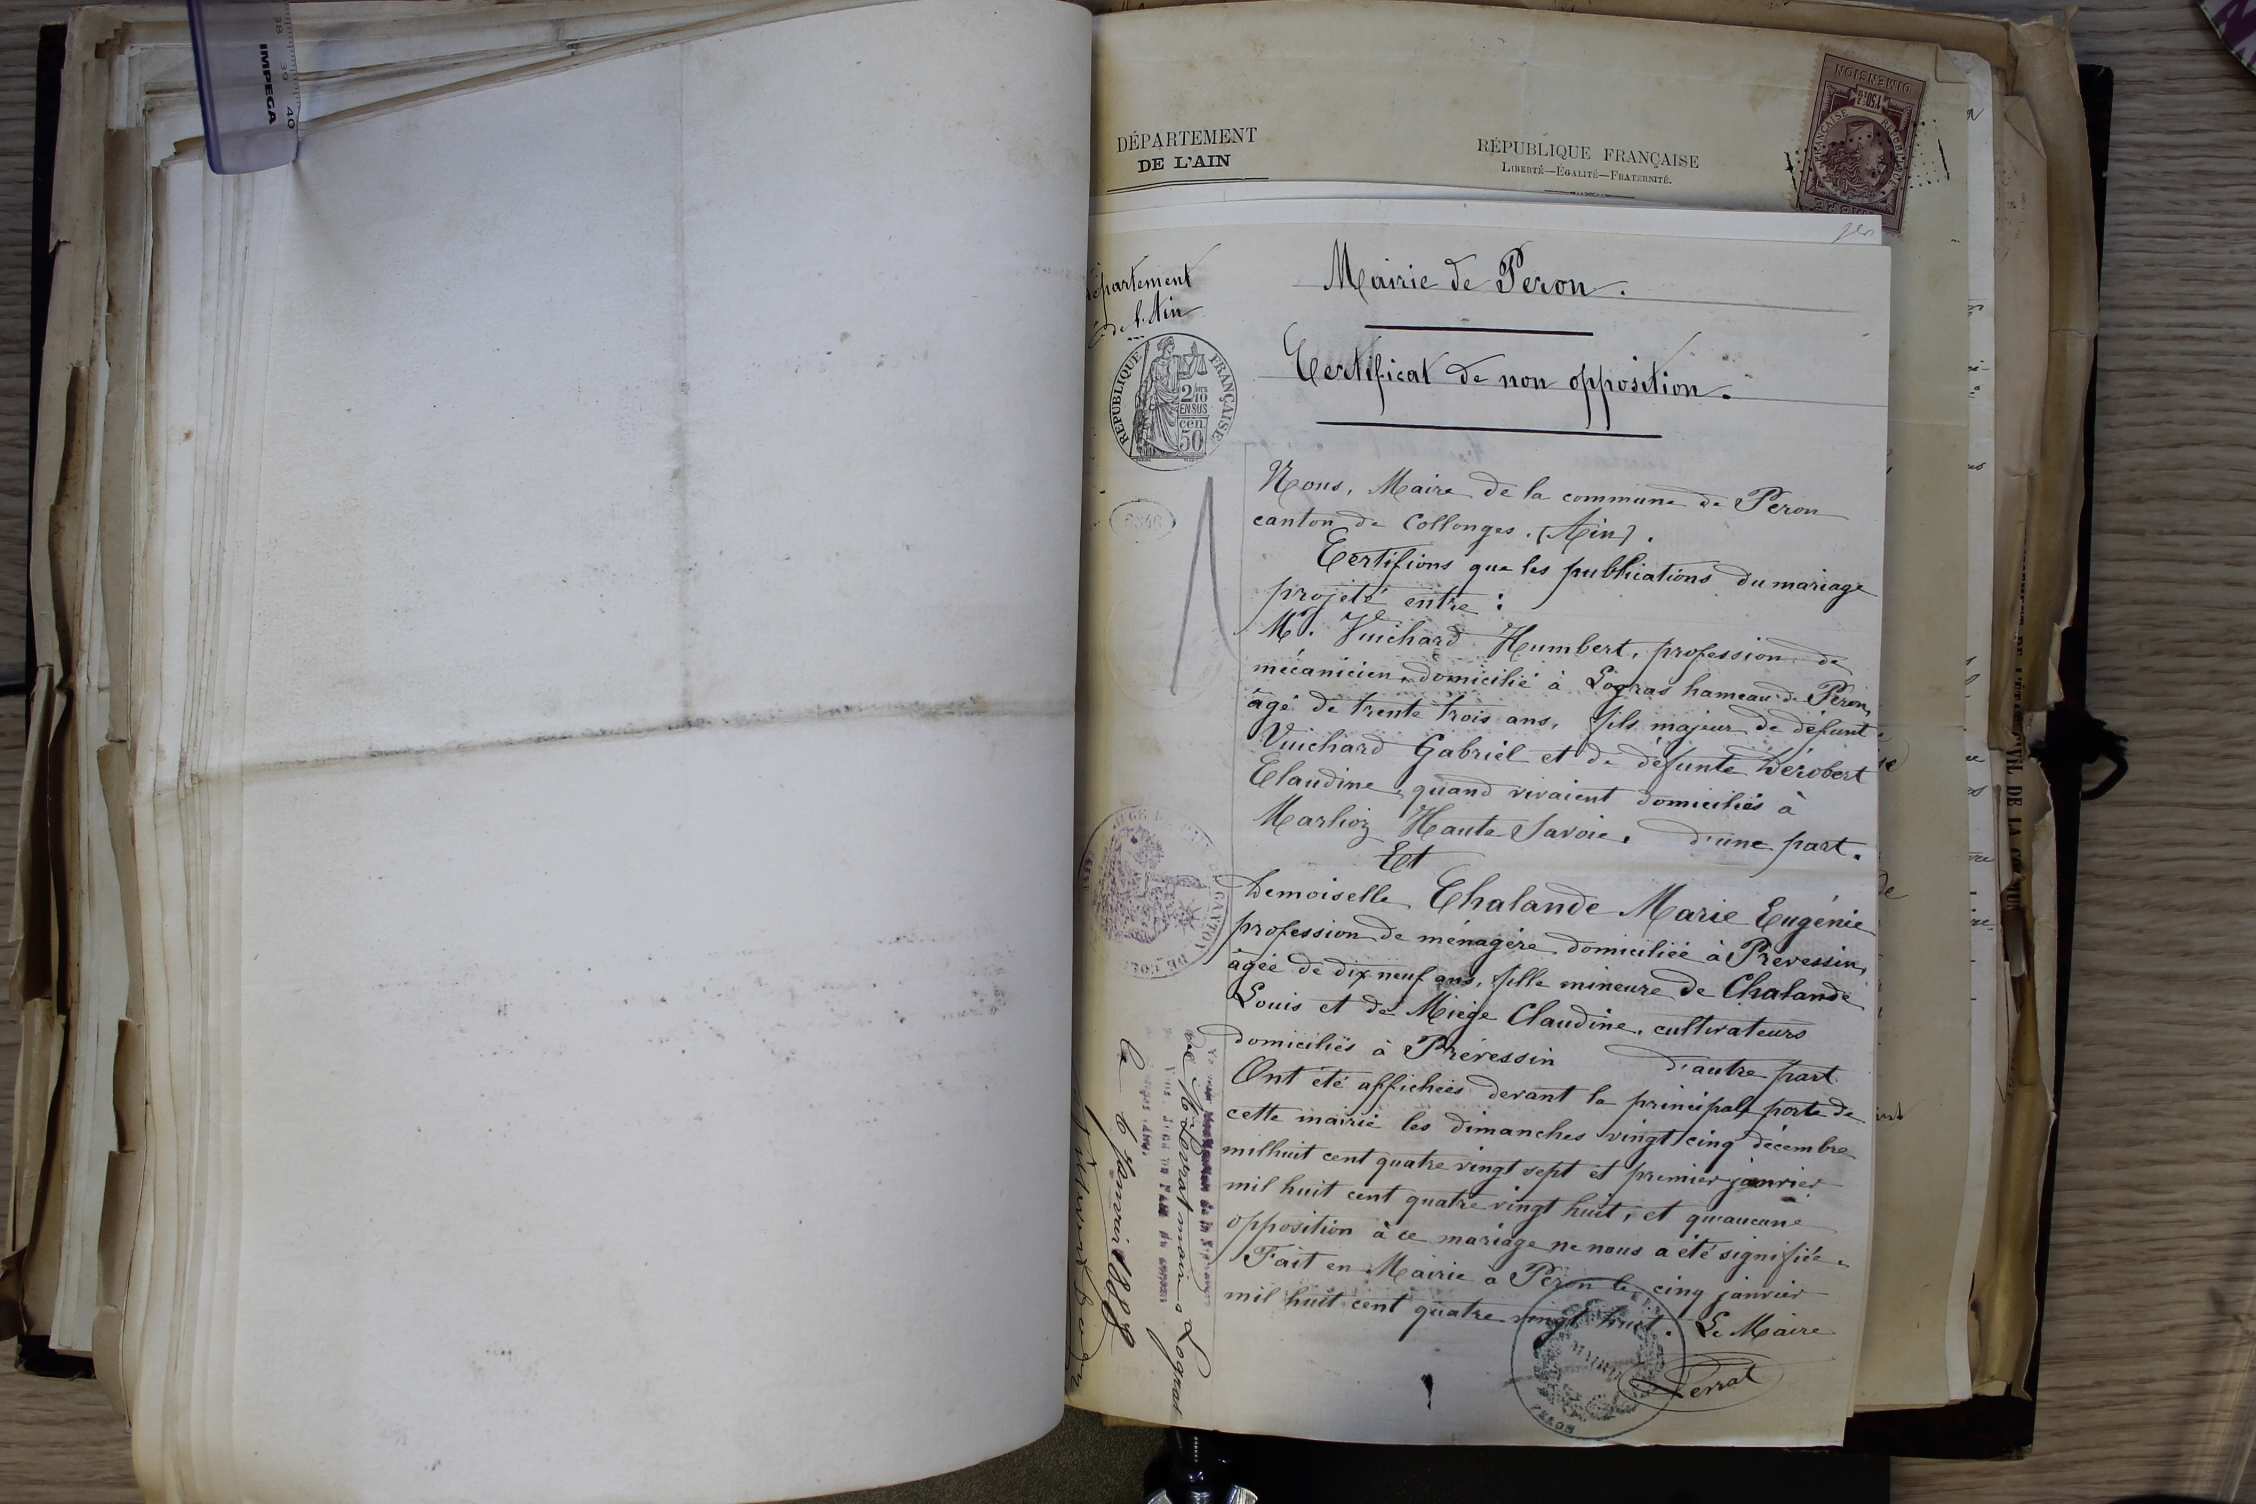 38 39 40
IMPEGA
DÉPARTEMENT
DE L'AIN
RÉPUBLIQUE FRANÇAISE
LIBERTÉ—EGALITÉ—FRATERNITÉ.
DIMENSION
1F50
Département
de l'Ain
RÉPUBLIQUE FRANÇAISE
2/10
EN SUS
50 cen
Mairie de Peron.
Certificat de non opposition.
Nous, Maire de la commune de Péron
canton de Collonges. (Ain).
Certifions que les publications du mariage
projeté entre :
Mr. Vuichard Humbert, profession de
mécanicien, domicilié à Logras hameau de Péron,
âgé de trente trois ans, fils majeur de défunt
Vuichard Gabriel et de défunte Dérobert
Claudine, quand vivaient domiciliés à
Marlioz Haute Savoie. d'une part.
Et
Demoiselle Chalande Marie Eugénie
profession de ménagère domiciliée à Prévessin,
âgée de dix neuf ans, fille mineure de Chalande
Louis et de Miège Claudine, cultivateurs
domiciliés à Prévessin d'autre part
Ont été affichées devant la principale porte de
cette mairie les dimanches vingt cinq décembre
mil huit cent quatre vingt sept et premier janvier
mil huit cent quatre vingt huit, et qu'aucune
opposition à ce mariage ne nous a été signifiée.
Fait en Mairie à Péron le cinq janvier
mil huit cent quatre vingt huit. Le Maire
Perrat
MAIRIE
PÉRON
de Mr Levrat maire à Logras
le 6 janvier 1888